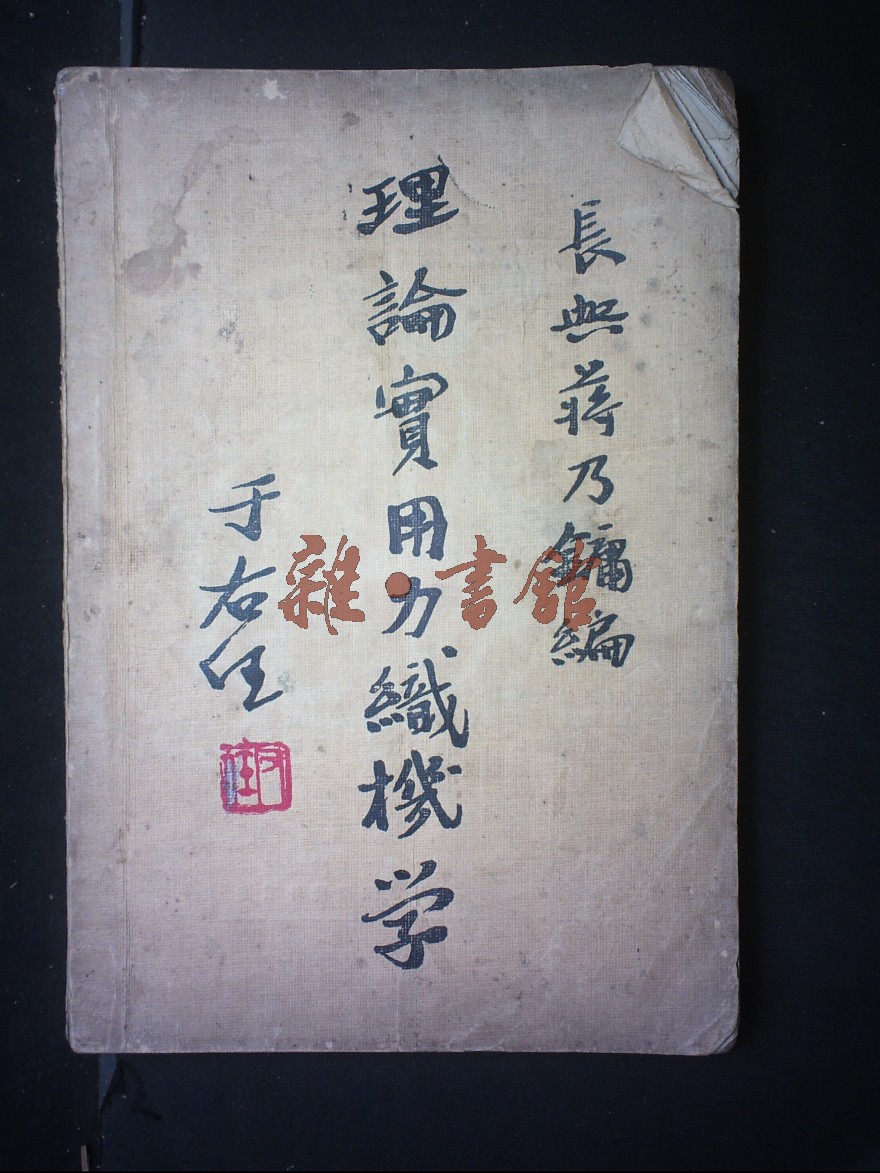 長興蔣乃鏞編
理論實用力織機学
于右任
右任
雜·書館